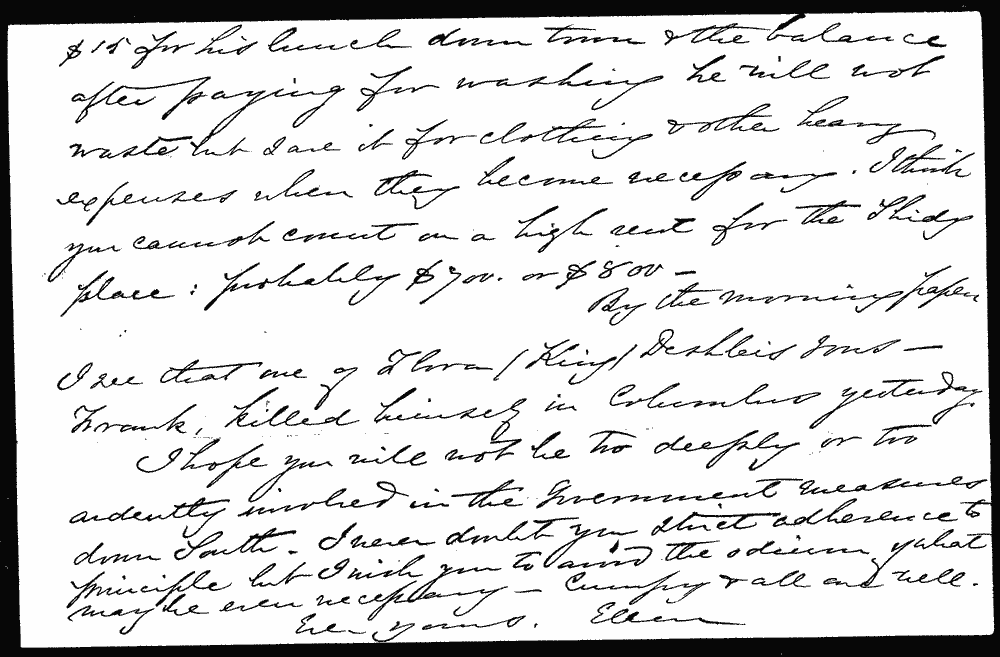 $15 for his lunch down town & the balance
after paying for washing he will not
waste but save it for clothing & other heavy
expenses when they become necessary. I think
you cannot count on a high rent for the
place: probably $700. or $800 —
By the morning papers
I see that one of Flora (King) Deshler's sons —
Frank, killed himself in Columbus yesterday.
I hope you will not be too deeply or too
ardently involved in the Government measures
down South - I never doubt your strict adherence to
principle but I wish you to avoid the odium of what
may be even necessary — Cumpy & all are well.
Ever yours. Ellen